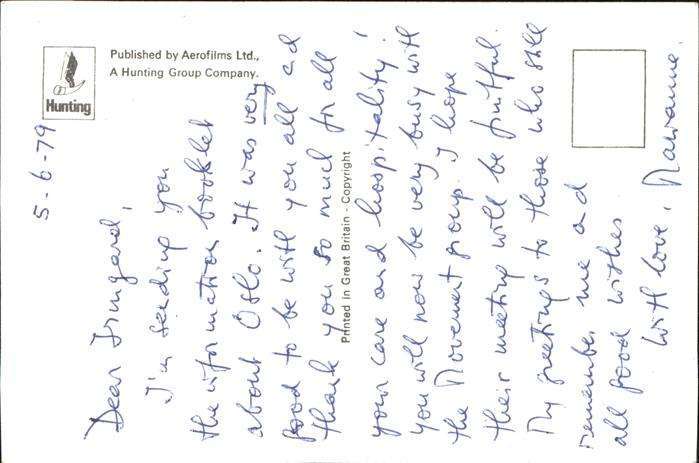 Published by Aerofilms Ltd.,
A Hunting Group Company.
Hunting
Printed in Great Britain - Copyright
5-6-79
Dear Irmgard,
I'm sending you
the information booklet
about Oslo. It was very
good to be with you all ad
thank you so much for all
your care and hospitality!
you will now be very busy with
the Movement group. I hope
their meeting will be fruitful.
My greetings to those who still
remember me and
all good wishes
With love, Marianne.